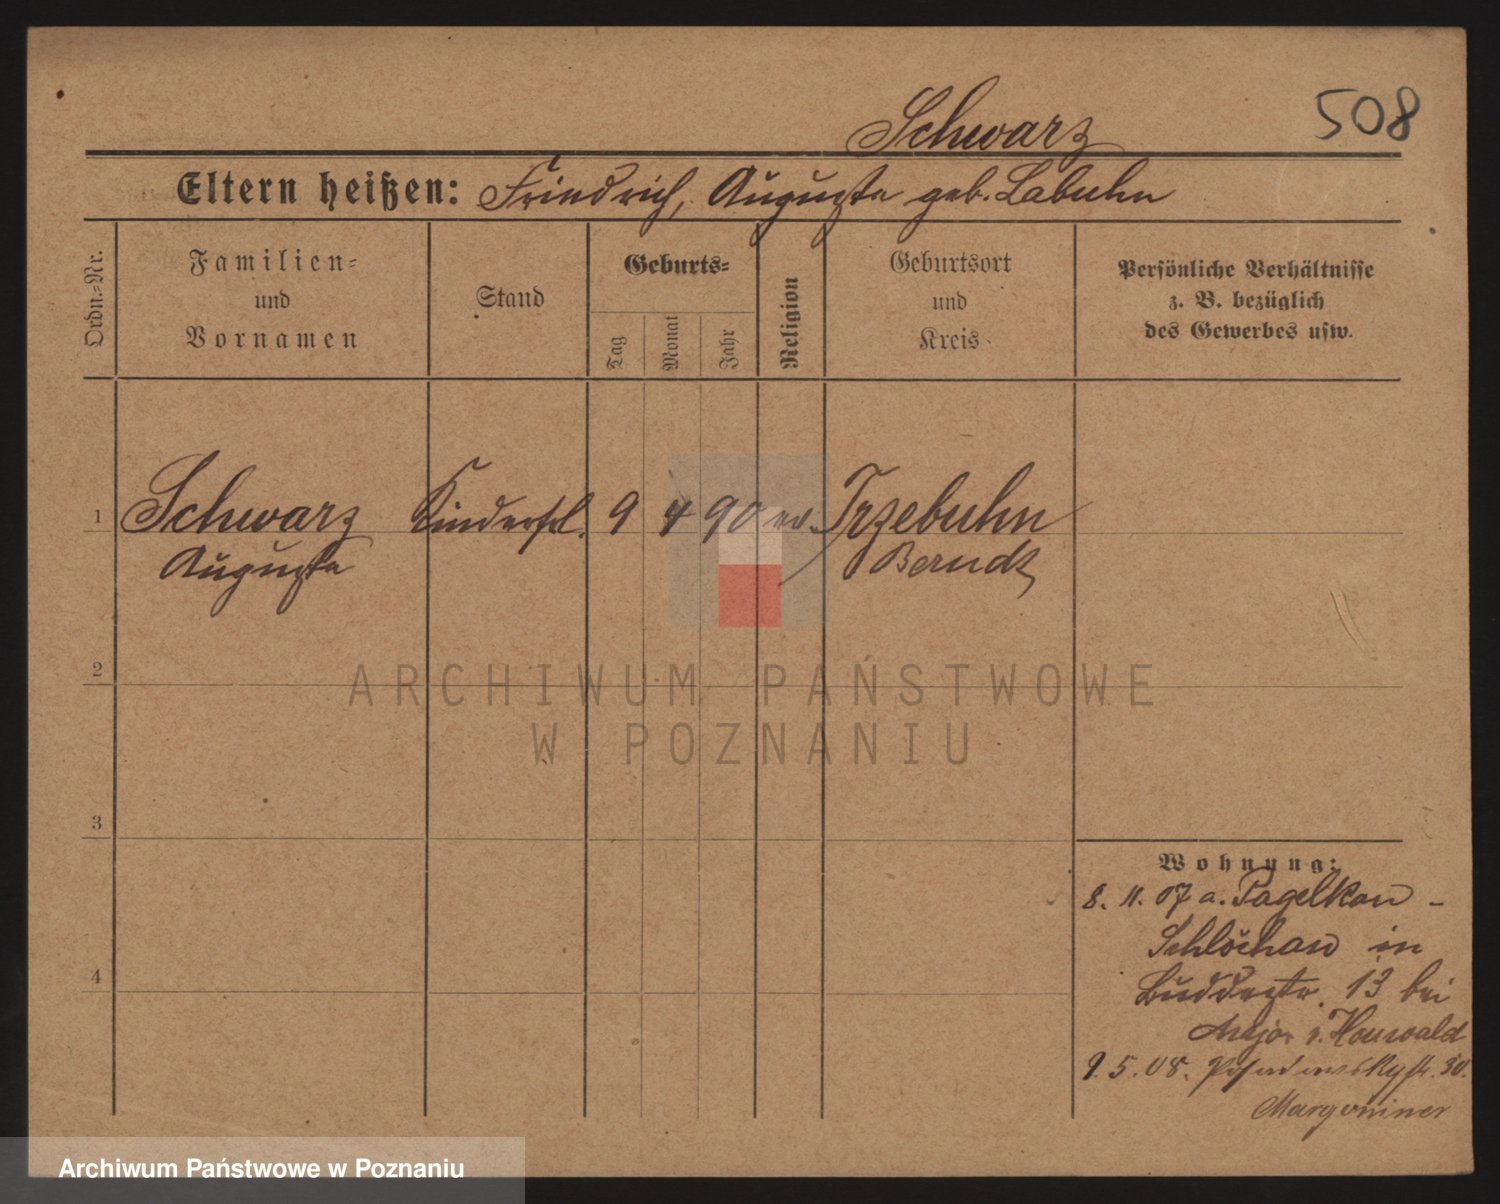 508
Schwarz
Eltern heißen: Friedrich, Auguste geb. Labuhn
Ordn.-Nr.
Familien-
und
Vornamen
Stand
Geburts-
Tag
Monat
Jahr
Religion
Geburtsort
und
Kreis
Persönliche Verhältnisse
z. B. bezüglich
des Gewerbes usw.
1
Schwarz Kinderfrl. 9 4 90 ev. Trzebuhn
Auguste Berndt
2
ARCHIWUM PAŃSTWOWE
W POZNANIU
3
4
Wohnung:
8. 11. 07 a. Pagelkau -
Schlochau in
Buddestr. 13 bei
Major v. Houwald
9. 5. 08. 30.
Margoniner
Archiwum Państwowe w Poznaniu